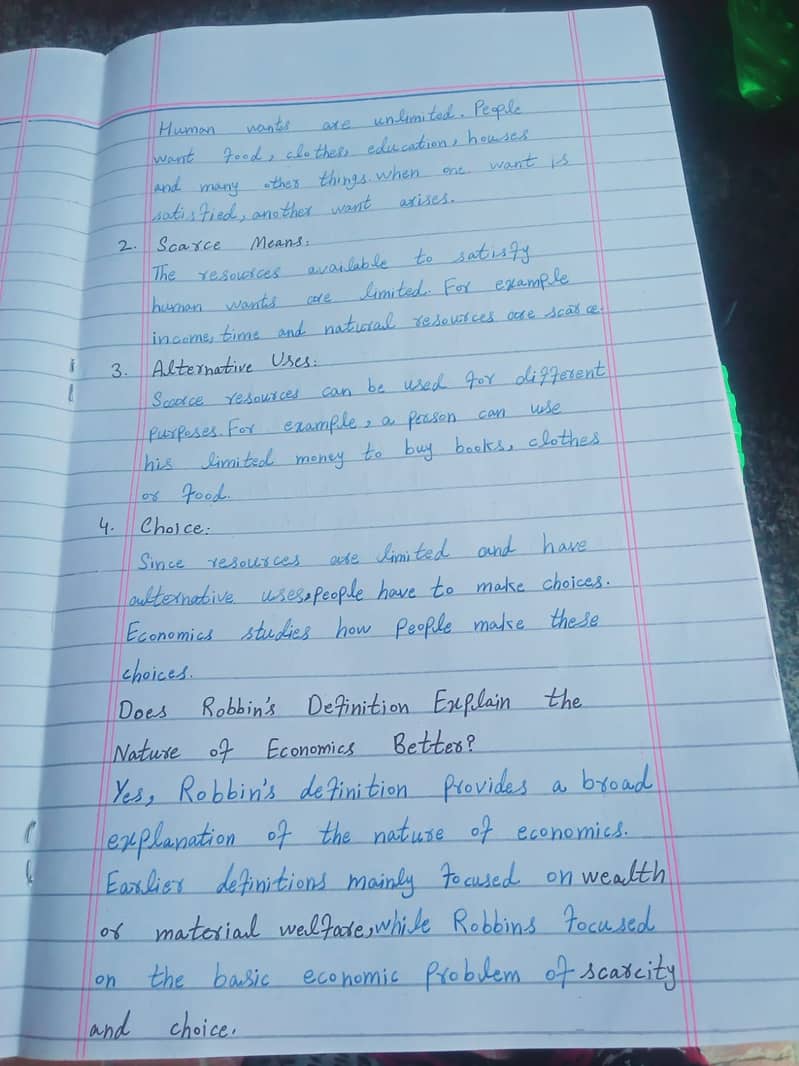 Human wants are unlimited. People
want food, clothes, education, houses
and many other things. when one want is
satisfied, another want arises.
2. Scarce Means:
The resources available to satisfy
human wants are limited. For example
income, time and natural resources are scarce.
3. Alternative Uses:
Scarce resources can be used for different
purposes. For example, a person can use
his limited money to buy books, clothes
or food.
4. Choice:
Since resources are limited and have
alternative uses, people have to make choices.
Economics studies how people make these
choices.
Does Robbin's Definition Explain the
Nature of Economics Better?
Yes, Robbin's definition provides a broad
explanation of the nature of economics.
Earlier definitions mainly focused on wealth
or material welfare, while Robbins focused
on the basic economic problem of scarcity
and choice.